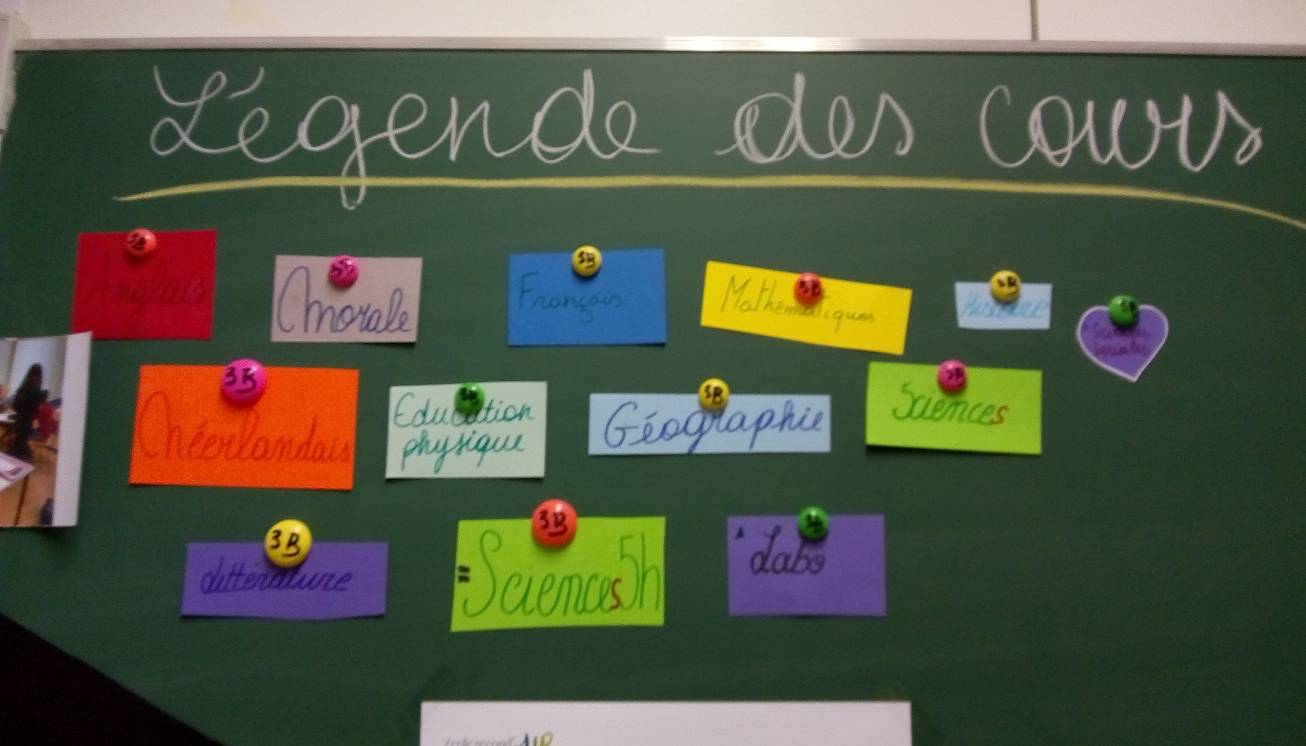 Légende des cours
Anglais
Morale
Français
Mathématiques
Histoire
Sciences
sociales
Néerlandais
Education
physique
Géographie
Sciences
Littérature
Sciences 5h
Labo
3B
3B
3B
3B
3B
3B
3B
3B
3B
3B
3B